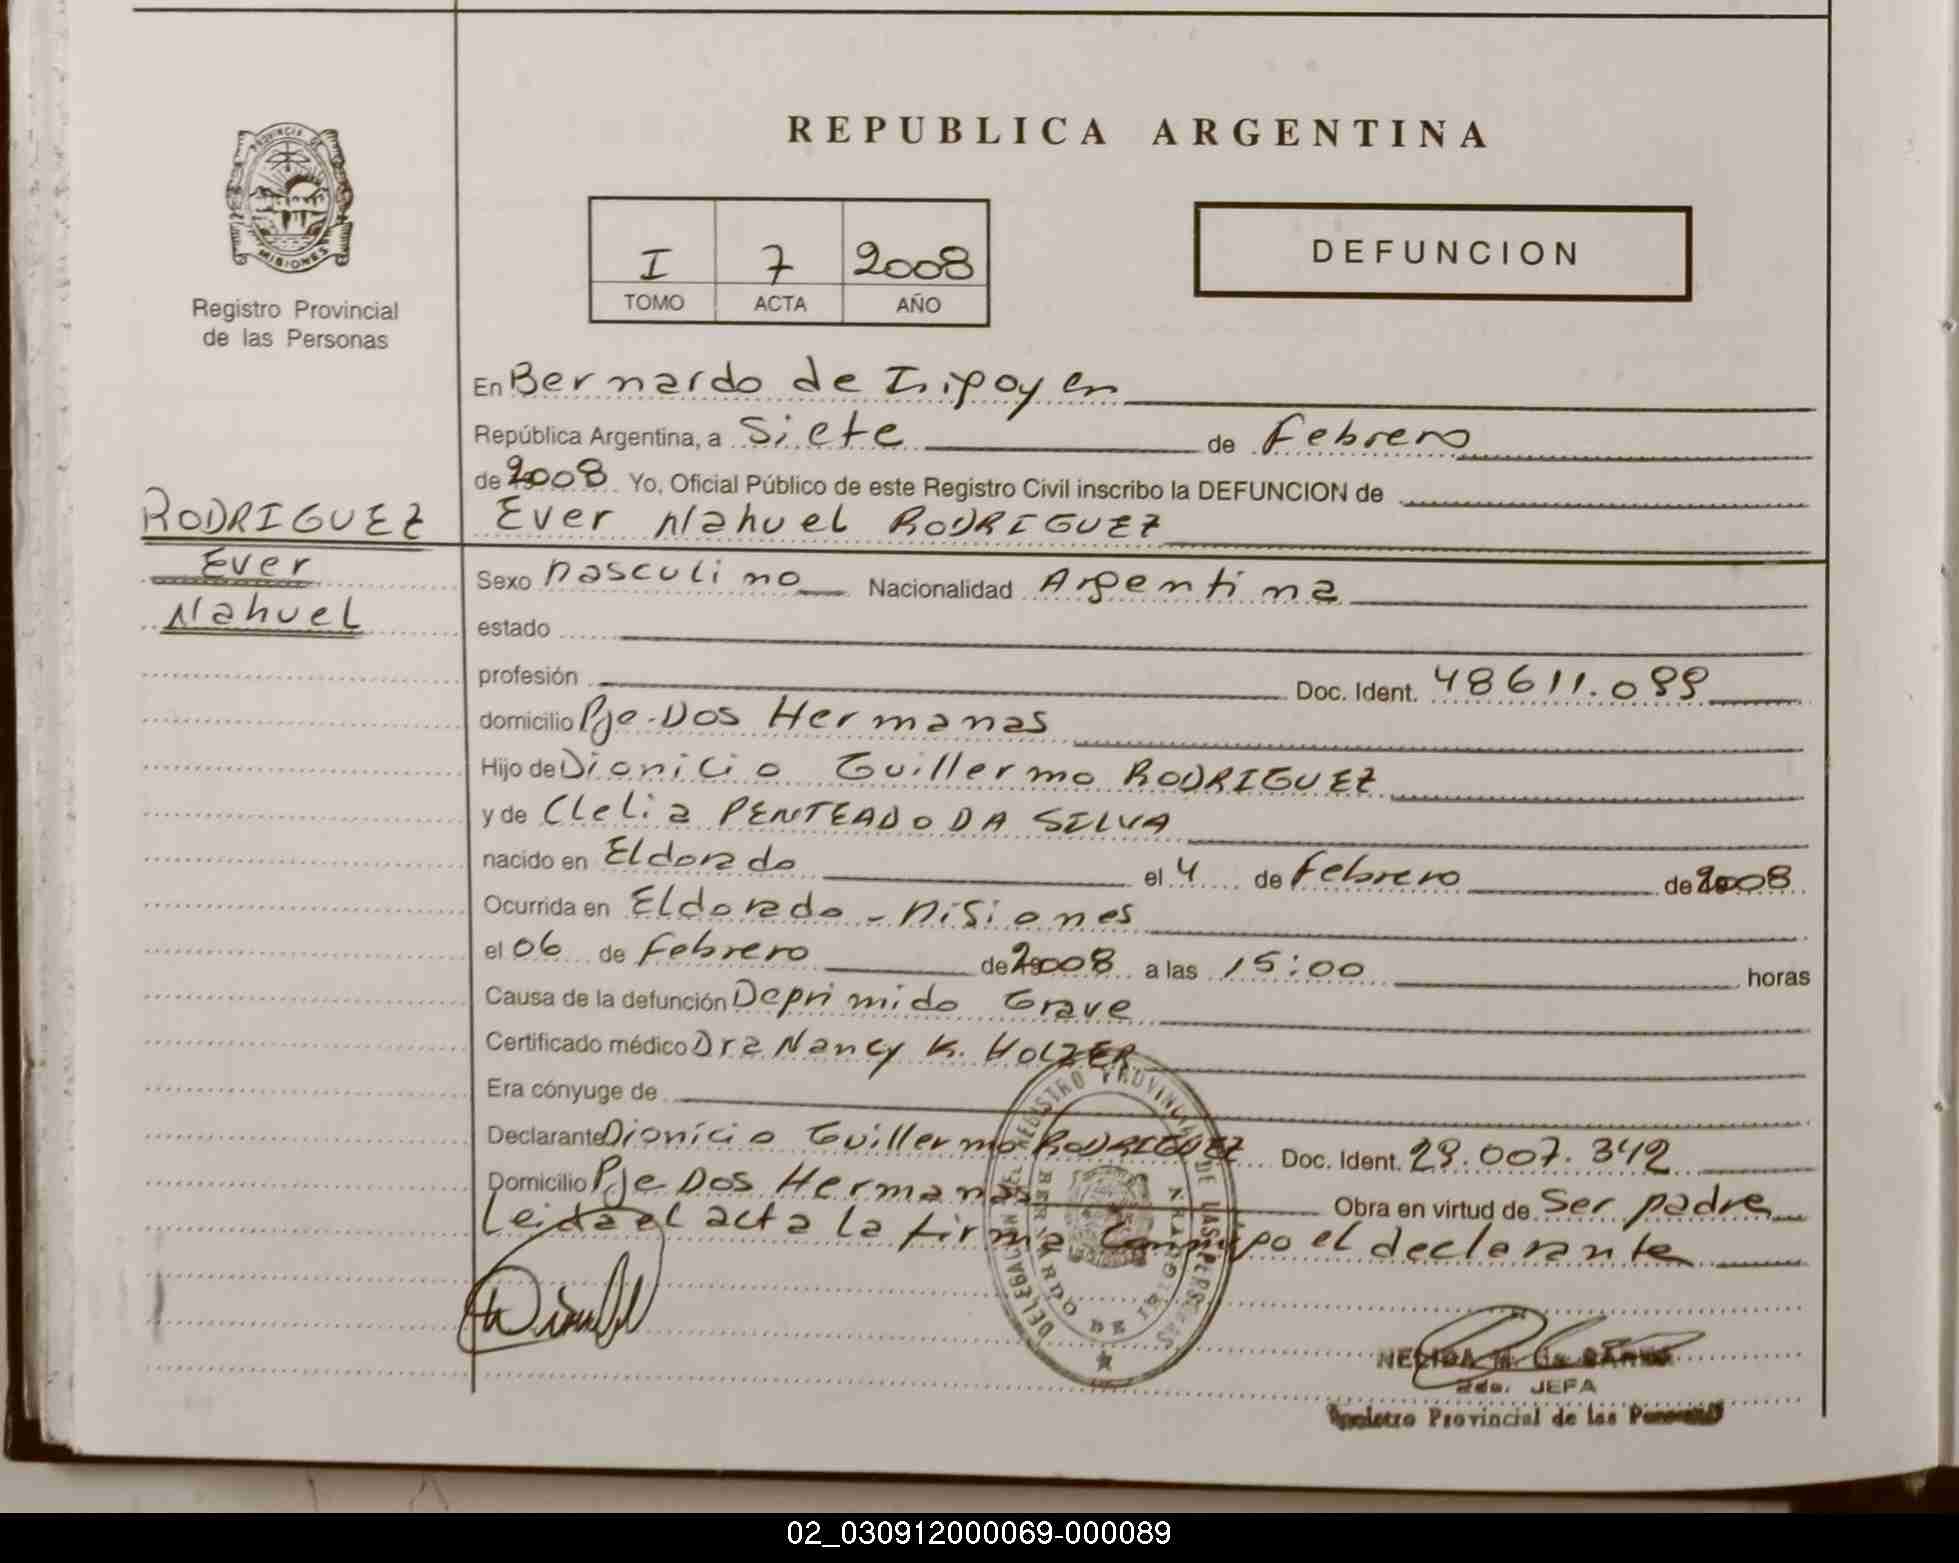 REPUBLICA ARGENTINA
PROVINCIA DE
MISIONES
Registro Provincial
de las Personas
I 7 2008
TOMO ACTA AÑO
DEFUNCION
En Bernardo de Iripoyen
República Argentina, a Siete de Febrero
de 2008 Yo, Oficial Público de este Registro Civil inscribo la DEFUNCION de
RODRIGUEZ
Ever
Nahuel
Ever Nahuel RODRIGUEZ
Sexo Masculino Nacionalidad Argentina
estado
profesión Doc. Ident. 48611.099
domicilio Pje. Dos Hermanas
Hijo de Dionicio Guillermo RODRIGUEZ
y de Clelia PENTEADO DA SILVA
nacido en Eldorado el 4 de Febrero de 2008
Ocurrida en Eldorado - Misiones
el 06 de Febrero de 2008 a las 15:00 horas
Causa de la defunción Deprimido Grave
Certificado médico Dra Nancy K. HOLZER
Era cónyuge de
Declarante Dionicio Guillermo RODRIGUEZ Doc. Ident. 29.007.342
Domicilio Pje Dos Hermanas Obra en virtud de Ser padre
Leida el acta la firma Conmigo el declarante
DELEGACION DEL REGISTRO PROVINCIAL DE LAS PERSONAS
BERNARDO DE IRIGOYEN
NELIDA
2da. JEFA
Registro Provincial de las Personas
02_030912000069-000089